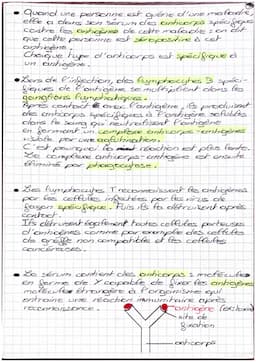 • Quand une personne est guérie d'une maladie,
elle a dans son sérum des anticorps spécifiques
contre les antigènes de cette maladie : on dit
que cette personne est séropositive à cet
antigène.
Chaque type d'anticorps est spécifique à
un antigène.
• Lors de l'infection, des lymphocytes B spéci-
fiques de l'antigène se multiplient dans les
ganglions lymphatiques.
Après contact avec l'antigène, ils produisent
des anticorps spécifiques à l'antigène solubles
dans le sang qui neutralisent l'antigène
en formant un complexe anticorps-antigène
visible par une agglutination.
C'est pourquoi la réaction est plus lente.
Le complexe anticorps-antigène est ensuite
éliminé par phagocytose.
• Les lymphocytes T reconnaissent les antigènes
par les cellules infectées par le virus de
façon spécifique. Puis ils le détruisent après
contact.
Ils détruisent également toutes cellules porteuses
d'antigènes comme par exemple des cellules
de greffe non compatible et les cellules
cancéreuses.
• Le sérum contient des anticorps : molécules
en forme de Y capable de fixer les antigènes,
molécules étrangère à l'organisme qui
entraîne une réaction immunitaire après
reconnaissance.
antigène
site de
fixation
anticorps